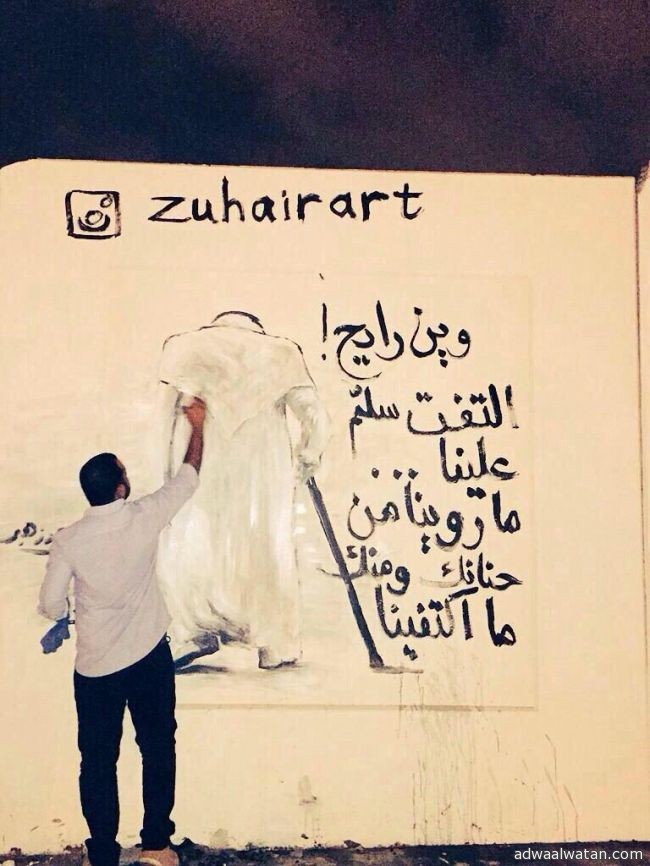 zuhairart
وين رايح!
التفت سلّم
علينا
ما روينا من
حنانك ومنك
ما اكتفينا
adwaalwatan.com